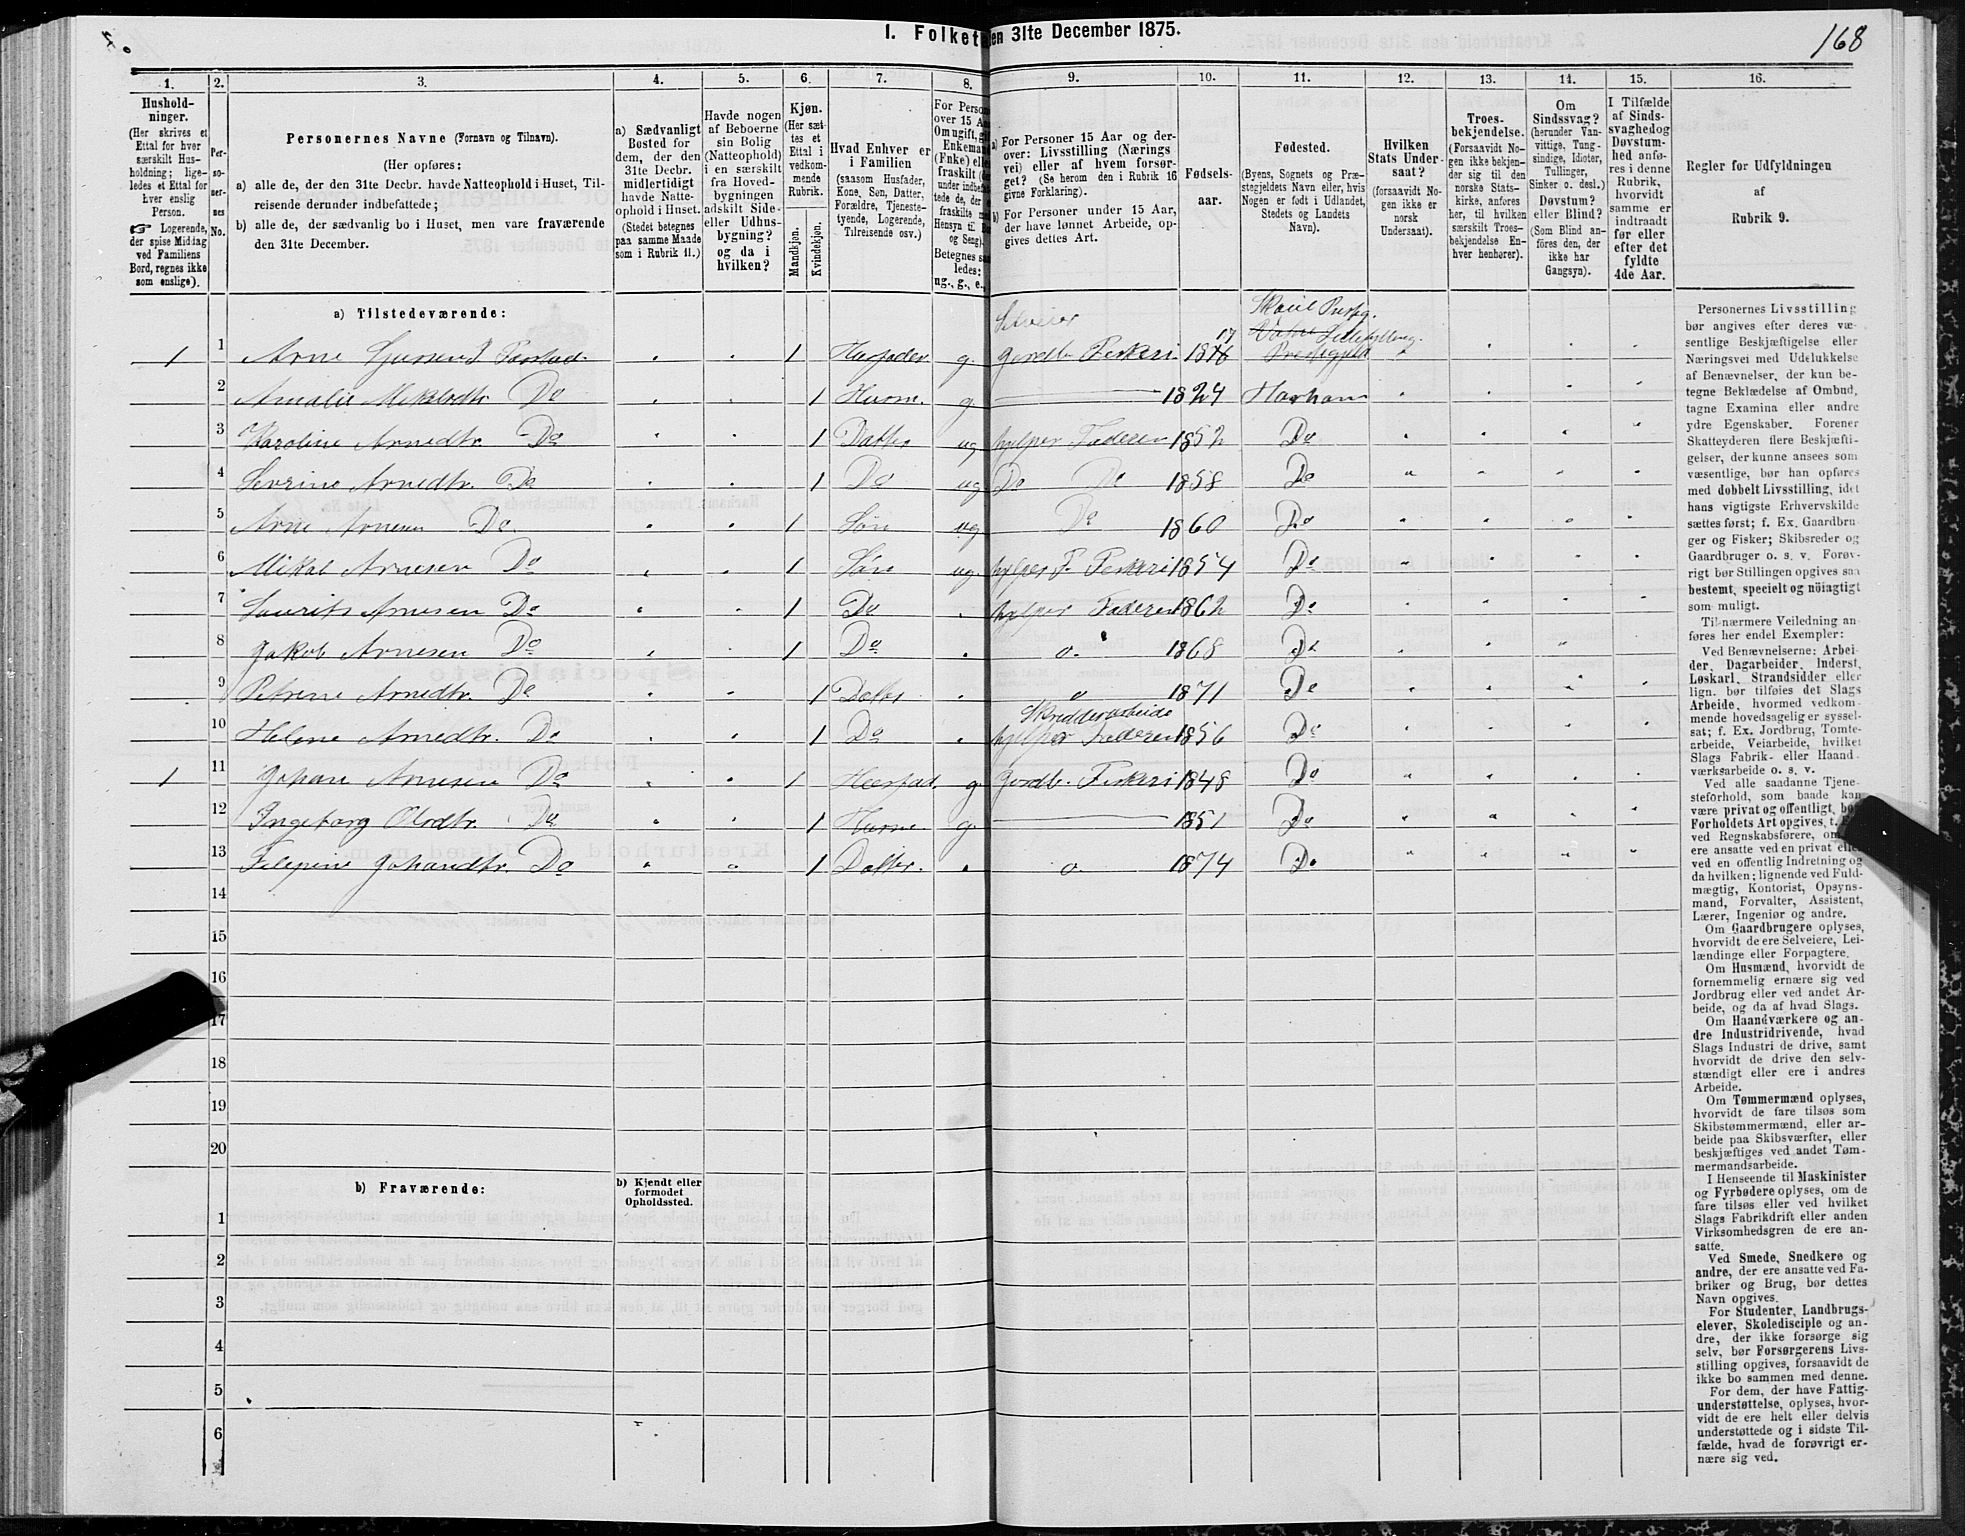 168
1. Folket
en 31te December 1875.
1.
2.
3.
4.
5.
6.
7.
8.
9.
10.
11.
12.
13.
14.
15.
16.
Hushold-
ninger.
(Her skrives et
Ettal for hver
særskilt Hus-
holdning; lige-
ledes et Ettal for
hver enslig
Person.
☞ Logerende,
der spise Middag
ved Familiens
Bord, regnes ikke
som enslige).
Per-
so-
ner-
nes
No.
Personernes Navne (Fornavn og Tilnavn).
(Her opføres:
a) alle de, der den 31te Decbr. havde Natteophold i Huset, Til-
reisende derunder indbefattede;
b) alle de, der sædvanlig bo i Huset, men vare fraværende
den 31te December.
a) Sædvanligt
Bosted for
dem, der den
31te Decbr.
midlertidigt
havde Natte-
ophold i Huset.
(Stedet betegnes
paa samme Maade
som i Rubrik 11.)
Havde nogen
af Beboerne
sin Bolig
(Natteophold)
i en særskilt
fra Hoved-
bygningen
adskilt Side-
eller Udhus-
bygning?
og da i
hvilken?
Kjøn.
(Her sæt-
tes et
Ettal i
vedkom-
mende
Rubrik.
Mandkjøn.
Kvindekjøn.
Hvad Enhver er
i Familien
(saasom Husfader,
Kone, Søn, Datter,
Forældre, Tjeneste-
tyende, Logerende,
Tilreisende osv.)
For Person
over 15 Aar
Om ugift, gi
Enkeman
(Enke) ell
fraskilt (d
under indbefat-
tede de, der
fraskilte m
Hensyn til B
og Seng).
Betegnes sa
ledes:
ug., g., e.,
a) For Personer 15 Aar og der-
over: Livsstilling (Nærings
vei) eller af hvem forsør-
get? (Se herom den i Rubrik 16
givne Forklaring).
b) For Personer under 15 Aar,
der have lønnet Arbeide, op-
gives dettes Art.
Fødsels-
aar.
Fødested.
(Byens, Sognets og Præ-
stegjeldets Navn eller, hvis
Nogen er født i Udlandet,
Stedets og Landets
Navn).
Hvilken
Stats Under-
saat?
(forsaavidt No-
gen ikke er
norsk
Undersaat).
Troes-
bekjendelse.
(Forsaavidt No-
gen ikke bekjen-
der sig til den
norske Stats-
kirke, anføres
her, til hvilken
særskilt Troes-
bekjendelse En-
hver henhører).
Om
Sindssvag?
(herunder Van-
vittige, Tung-
sindige, Idioter,
Tullinger,
Sinker o. desl.)
Døvstum?
eller Blind?
(Som Blind an-
føres den, der
ikke har
Gangsyn).
I Tilfælde
af Sinds-
svaghed og
Døvstum-
hed anfø-
res i denne
Rubrik,
hvorvidt
samme er
indtraadt
før eller
efter det
fyldte
4de Aar.
Regler for Udfyldningen
af
Rubrik 9.
a) Tilstedeværende:
Selveier
Skoue
17
1 1 Arne 1 Husfader g. Gordb Fiskeri 1816 Prestegjeld
2 Amalie Do 1 Husm. g 1824 Harham
3 Karoline Arnedtr. Do 1 Datter ug hjelper Faderen 1852 Do
4 Sevrine Arnedtr. Do 1 Do ug Do Do 1858 Do
5 Arne Arnesen Do 1 Søn ug Do 1860 Do
6 Mikal Arnesen Do 1 Søn ug hjelper F. Fiskeri 1854 Do
7 Laurits Arnesen Do 1 Do hjelper Faderen 1862 Do
8 Jakob Arnesen Do 1 Do o. 1868 Do
9 Petrine Arnedtr. Do 1 Datter o 1871 Do
Skrædderarbeide
10 Helene Arnedtr. Do 1 Do hjelper Faderen 1856 Do
1 11 Johan Arnesen Do 1 Husfad. g. Gordb. Fiskeri 1848 Do
12 Ingeborg Olsdtr. Do 1 Husm. g. 1851 Do
13 Filipine Johandtr. Do 1 Datter. o. 1874 Do
14
15
16
17
18
19
20
b) Fraværende:
b) Kjendt eller
formodet
Opholdssted.
1
2
3
4
5
6
Personernes Livsstilling
bør angives efter deres væ-
sentlige Beskjæftigelse eller
Næringsvei med Udelukkelse
af Benævnelser, der kun be-
tegne Beklædelse af Ombud,
tagne Examina eller andre
ydre Egenskaber. Forener
Skatteyderen flere Beskjæfti-
gelser, der kunne ansees som
væsentlige, bør han opføres
med dobbelt Livsstilling, idet
hans vigtigste Erhvervskilde
sættes først; f. Ex. Gaardbru-
ger og Fisker; Skibsreder og
Gaardbruger o. s. v. Forøv-
rigt bør Stillingen opgives saa
bestemt, specielt og nöiagtigt
som muligt.
Til nærmere Veiledning an-
føres her endel Exempler:
Ved Benævnelserne: Arbei-
der, Dagarbeider, Inderst,
Løskarl, Strandsidder eller
lign. bør tilføies det Slags
Arbeide, hvormed vedkom-
mende hovedsagelig er syssel-
sat; f. Ex. Jordbrug, Tomte-
arbeide, Veiarbeide, hvilket
Slags Fabrik- eller Haand-
værksarbeide o. s. v.
Ved alle saadanne Tjene-
steforhold, som baade kan
være privat og offentligt, bør
Forholdets Art opgives, t.
ved Regnskabsførere, om
ere ansatte ved en privat eller
ved en offentlig Indretning og
da hvilken; lignende ved Fuld-
mægtig, Kontorist, Opsyns-
mand, Forvalter, Assistent,
Lærer, Ingeniør og andre.
Om Gaardbrugere oplyses,
hvorvidt de ere Selveiere, Lei-
lændinge eller Forpagtere.
Om Husmænd, hvorvidt de
fornemmelig ernære sig ved
Jordbrug eller ved andet Ar-
beide, og da af hvad Slags.
Om Haandværkere og an-
dre Industridrivende, hvad
Slags Industri de drive, samt
hvorvidt de drive den selv-
stændigt eller ere i andres
Arbeide.
Om Tømmermænd oplyses,
hvorvidt de fare tilsøs som
Skibstømmermænd, eller ar-
beide paa Skibsværfter, eller
beskjæftiges ved andet Tøm-
mermandsarbeide.
I Henseende til Maskinister
og Fyrbødere oplyses, om de
fare tilsøs eller ved hvilket
Slags Fabrikdrift eller anden
Virksomhedsgren de ere an-
satte.
Ved Smede, Snedkere og
andre, der ere ansatte ved Fa-
briker og Brug, bør dettes
Navn opgives.
For Studenter, Landbrugs-
elever, Skoledisciple og an-
dre, der ikke forsørge sig
selv, bør Forsørgerens Livs-
stilling opgives, forsaavidt de
ikke bo sammen med denne.
For dem, der have Fattig-
understøttelse, oplyses, hvor-
vidt de ere helt eller delvis
understøttede og i sidste Til-
fælde, hvad de forøvrigt er-
nære sig ved.